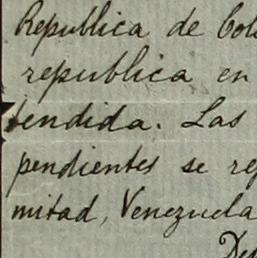 Republica de Col
republica en
tendida. Las
pendientes se re
mitad, Venezuela
De